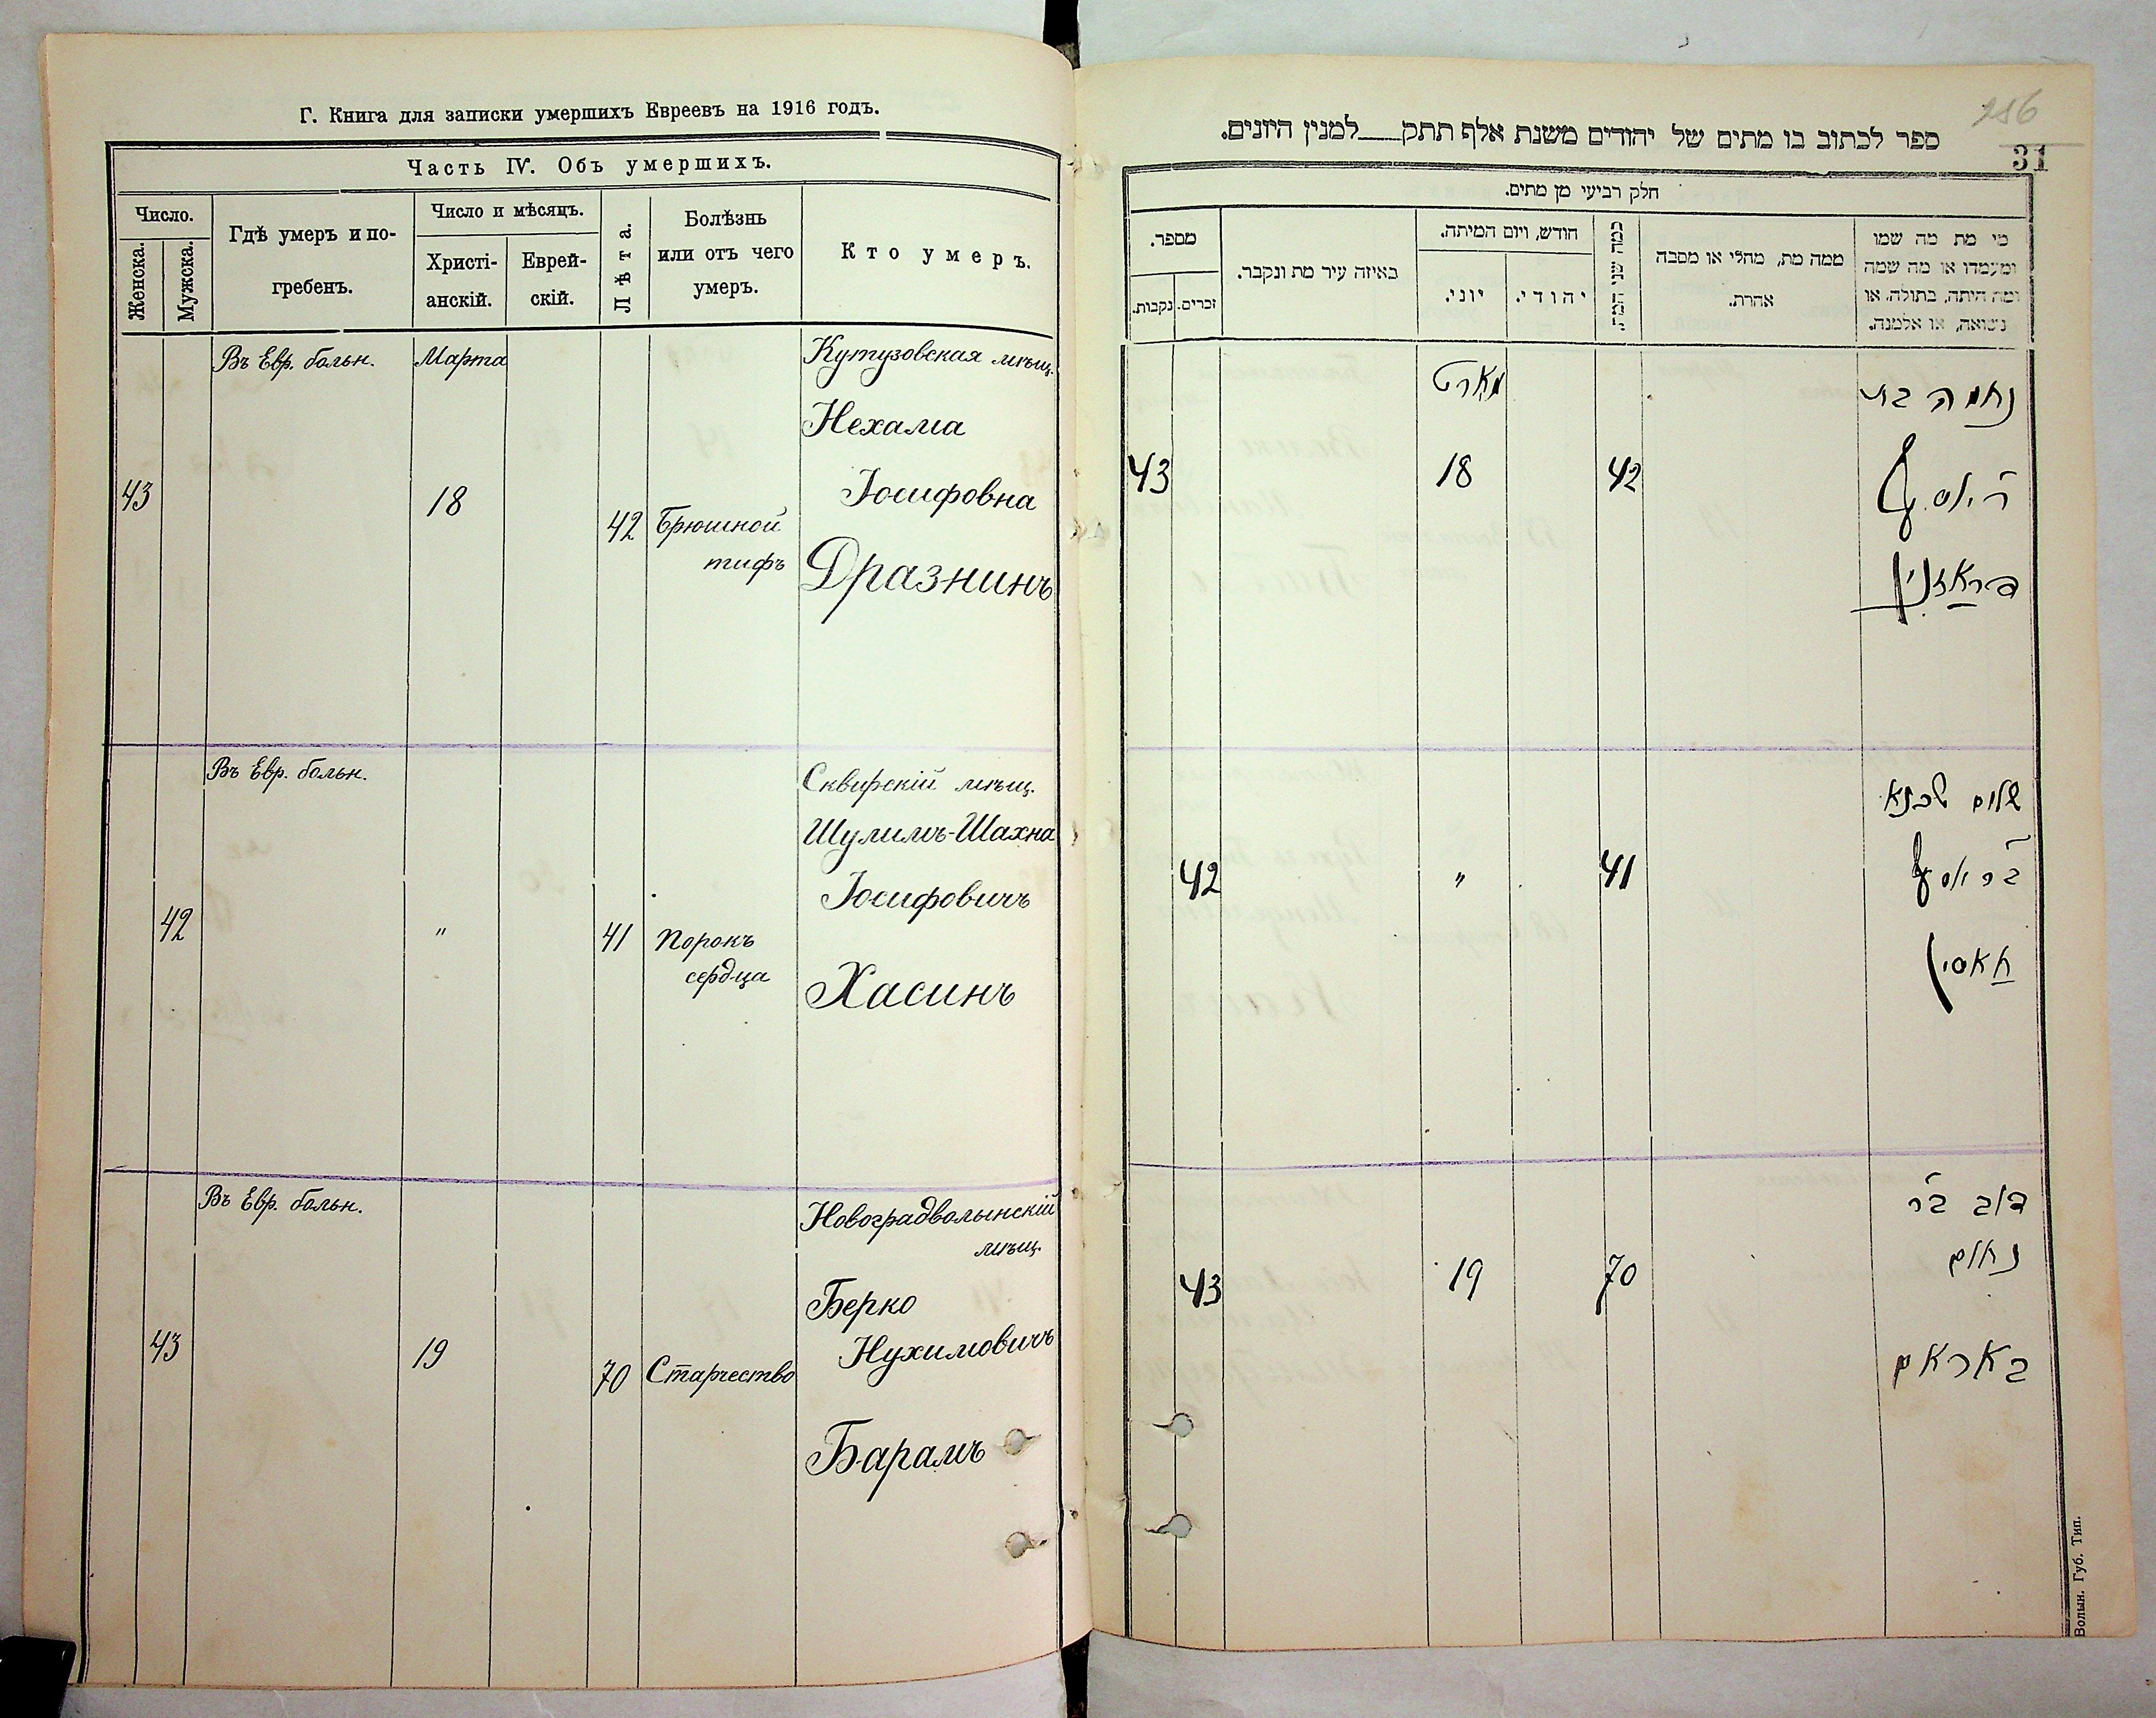 Г. Книга для записки умершихъ Евреевъ на 1916 годъ.
Часть IV. Объ умершихъ.
Число.
Женска.
Мужска.
Гдѣ умеръ и по-
гребенъ.
Число и мѣсяцъ.
Христі-
анскій.
Еврей-
скій.
Лѣта.
Болѣзнь
или отъ чего
умеръ.
Кто умеръ.
Въ Евр. больн.
Марта
Кутузовская мѣщ.
Нехама
Іосифовна
43
18
42
Брюшной
тифъ
Дразнинъ
Въ Евр. больн.
Сквирскій мѣщ.
Шулимъ-Шахна
Іосифовичъ
42
"
41
Порокъ
сердца
Хасинъ
Въ Евр. больн.
Новоградволынскій
мѣщ.
Берко
Нухимовичъ
43
19
70
Старчество
Барамъ
256
31
ספר לכתוב בו מתים של יהודים משנת אלף תתק___למנין היונים.
חלק רביעי מן מתים.
מספר.
נקבות.
זכרים.
באיזה עיר מת ונקבר.
חודש, ויום המיתה.
יוני.
יהודי.
כמה שני המת.
ממה מת, מחלי או מסבה
אחרת.
מי מת מה שמו
ומעמדו או מה שמה
ומה היתה, בתולה, או
נשואה, או אלמנה.
מארט
נחמה בת
43
18
42
ר יוסף
דראזנין
שלום שכנא
42
"
41
בר יוסף
חאסין
דוב בר
נחום
43
19
70
באראם
Волын. Губ. Тип.